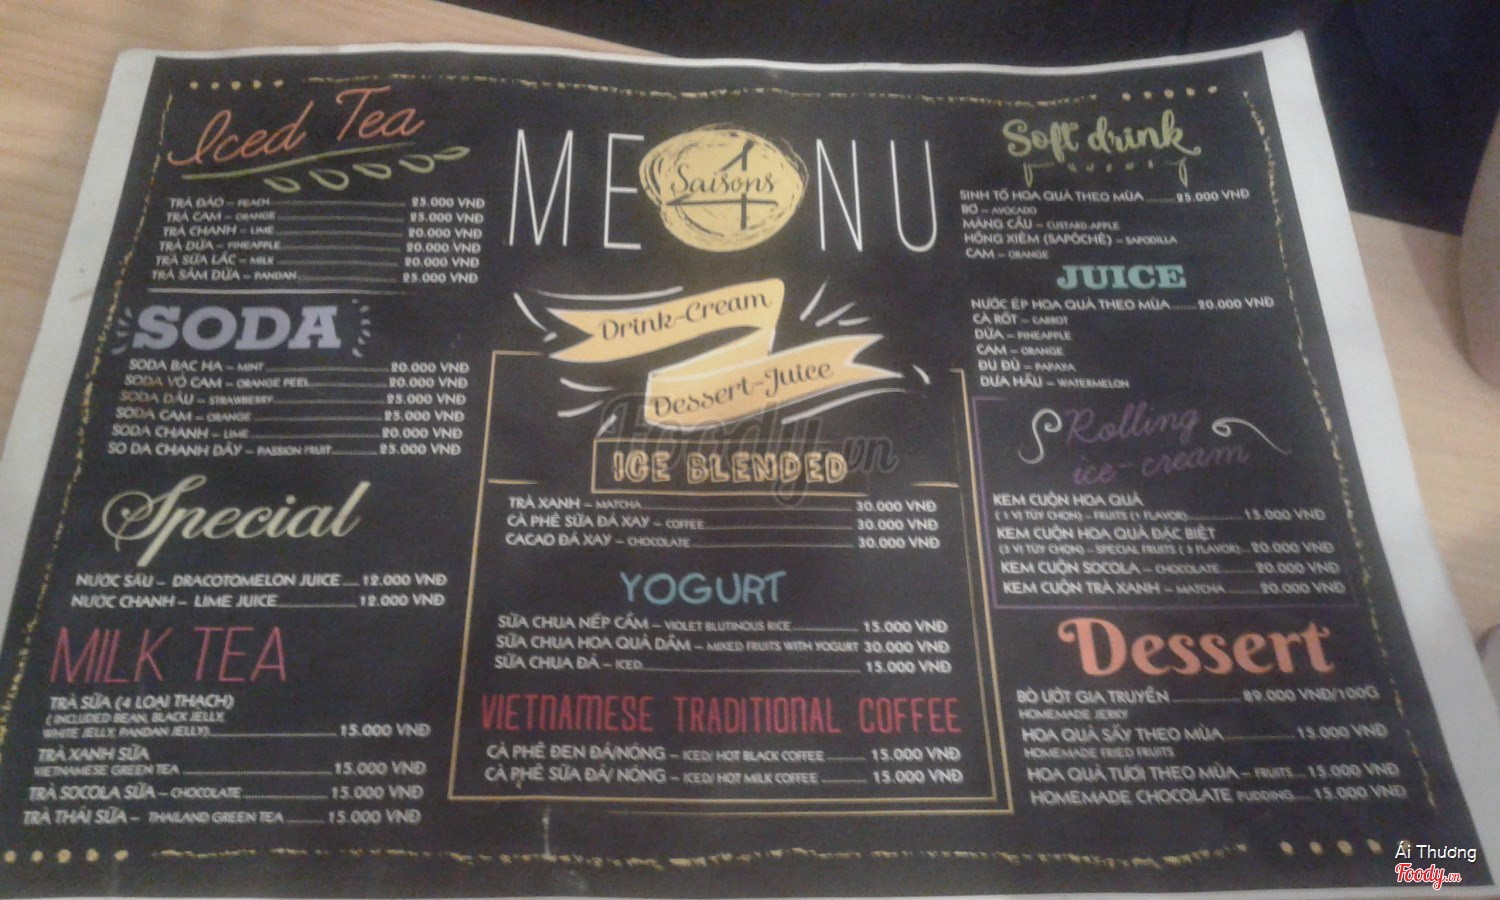 Iced Tea
TRÀ ĐÀO – PEACH 25.000 VNĐ
TRÀ CAM – ORANGE 25.000 VNĐ
TRÀ CHANH – LIME 20.000 VNĐ
TRÀ DỨA – PINEAPPLE 20.000 VNĐ
TRÀ SỮA LẮC – MILK 20.000 VNĐ
TRÀ SÂM DỨA – PANDAN 25.000 VNĐ
SODA
SODA BẠC HÀ – MINT 20.000 VNĐ
SODA VỎ CAM – ORANGE PEEL 20.000 VNĐ
SODA DÂU – STRAWBERRY 25.000 VNĐ
SODA CAM – ORANGE 25.000 VNĐ
SODA CHANH – LIME 20.000 VNĐ
SO DA CHANH DÂY – PASSION FRUIT 25.000 VNĐ
Special
NƯỚC SẤU – DRACOTOMELON JUICE 12.000 VNĐ
NƯỚC CHANH – LIME JUICE 12.000 VNĐ
MILK TEA
TRÀ SỮA (4 LOẠI THẠCH)
( INCLUDED BEAN, BLACK JELLY,
WHITE JELLY, PANDAN JELLY) 15.000 VNĐ
TRÀ XANH SỮA
VIETNAMESE GREEN TEA 15.000 VNĐ
TRÀ SOCOLA SỮA – CHOCOLATE 15.000 VNĐ
TRÀ THÁI SỮA – THAILAND GREEN TEA 15.000 VNĐ
MENU
4 Saisons
Drink-Cream
Dessert-Juice
ICE BLENDED
TRÀ XANH – MATCHA 30.000 VNĐ
CÀ PHÊ SỮA ĐÁ XAY – COFFEE 30.000 VNĐ
CACAO ĐÁ XAY – CHOCOLATE 30.000 VNĐ
YOGURT
SỮA CHUA NẾP CẨM – VIOLET BLUTINOUS RICE 15.000 VNĐ
SỮA CHUA HOA QUẢ DẦM – MIXED FRUITS WITH YOGURT 30.000 VNĐ
SỮA CHUA ĐÁ – ICED 15.000 VNĐ
VIETNAMESE TRADITIONAL COFFEE
CÀ PHÊ ĐEN ĐÁ/NÓNG – ICED/ HOT BLACK COFFEE 15.000 VNĐ
CÀ PHÊ SỮA ĐÁ/ NÓNG – ICED/ HOT MILK COFFEE 15.000 VNĐ
Soft drink
SINH TỐ HOA QUẢ THEO MÙA 25.000 VNĐ
BƠ – AVOCADO
MÃNG CẦU – CUSTARD APPLE
HỒNG XIÊM (SAPÔCHÊ) – SAPODILLA
CAM – ORANGE
JUICE
NƯỚC ÉP HOA QUẢ THEO MÙA 20.000 VNĐ
CÀ RỐT – CARROT
DỨA – PINEAPPLE
CAM – ORANGE
ĐU ĐỦ – PAPAYA
DƯA HẤU – WATERMELON
Rolling
ice-cream
KEM CUỘN HOA QUẢ
( 1 VỊ TÙY CHỌN) – FRUITS (1 FLAVOR) 15.000 VNĐ
KEM CUỘN HOA QUẢ ĐẶC BIỆT
(3 VỊ TÙY CHỌN) – SPECIAL FRUITS ( 3 FLAVOR) 20.000 VNĐ
KEM CUỘN SOCOLA – CHOCOLATE 20.000 VNĐ
KEM CUỘN TRÀ XANH – MATCHA 20.000 VNĐ
Dessert
BÒ ƯỚT GIA TRUYỀN 89.000 VNĐ/100G
HOMEMADE JERKY
HOA QUẢ SẤY THEO MÙA 15.000 VNĐ
HOMEMADE FRIED FRUITS
HOA QUẢ TƯƠI THEO MÙA – FRUITS 15.000 VNĐ
HOMEMADE CHOCOLATE PUDDING 15.000 VNĐ
Foody.vn
Ái Thương
Foody.vn